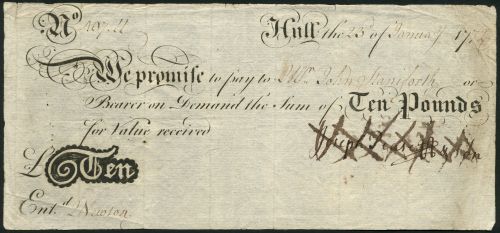 No
Hull the 25 of January 17
We promise to pay to Mr. John Staniforth or
Bearer on Demand the Sum of Ten Pounds
for Value received
£ Ten
Ent.d Newton